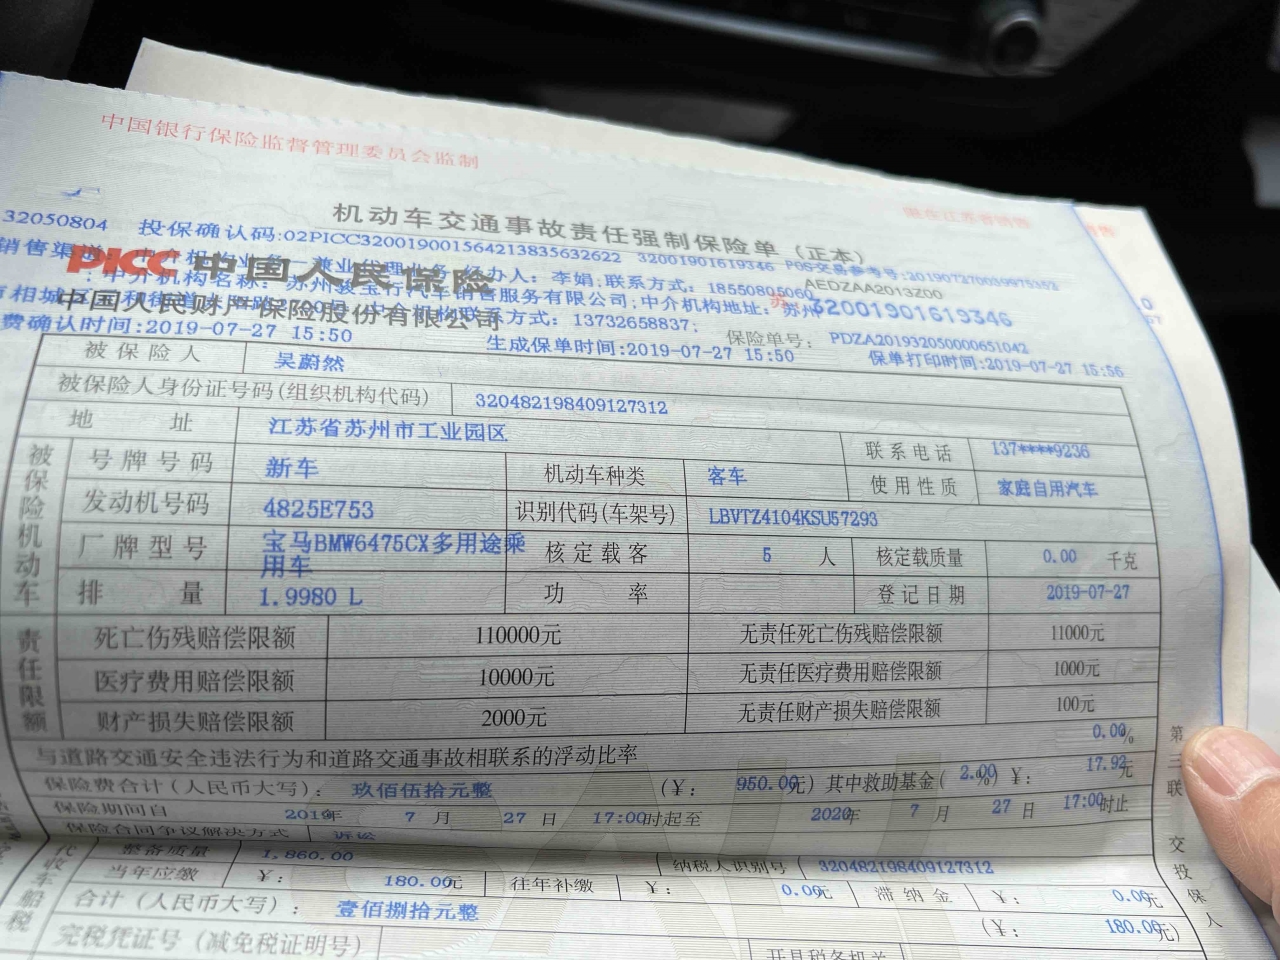 中国银行保险监督管理委员会监制
机动车交通事故责任强制保险单（正本）
32050804 投保确认码:02PICC320019001564213835632622 32001901619346 POS交易参考号:
销售渠道: 中介机构业务－兼业代理业务 经办人: 李娟;联系方式: 18550805060
AEDZAA2013Z00
PICC 中国人民保险
: 中介机构名称: 苏州骏宝行汽车销售服务有限公司;中介机构地址: 苏州
32001901619346
中国人民财产保险股份有限公司
联系方式: 13732658837;
保险单号: PDZA201932050000651042
费确认时间:2019-07-27 15:50 生成保单时间:2019-07-27 15:50 保单打印时间:2019-07-27 15:56
被保险人 吴蔚然
被保险人身份证号码(组织机构代码) 320482198409127312
地 址 江苏省苏州市工业园区 联系电话 137****9236
被保险机动车
号牌号码 新车 机动车种类 客车 使用性质 家庭自用汽车
发动机号码 4825E753 识别代码(车架号) LBVTZ4104KSU57293
厂牌型号 宝马BMW6475CX多用途乘用车 核定载客 5 人 核定载质量 0.00 千克
排 量 1.9980 L 功 率 登记日期 2019-07-27
责任限额
死亡伤残赔偿限额 110000元 无责任死亡伤残赔偿限额 11000元
医疗费用赔偿限额 10000元 无责任医疗费用赔偿限额 1000元
财产损失赔偿限额 2000元 无责任财产损失赔偿限额 100元
与道路交通安全违法行为和道路交通事故相联系的浮动比率 0.00%
保险费合计(人民币大写): 玖佰伍拾元整 (¥: 950.00元) 其中救助基金( 2.00%) ¥: 17.92元
保险期间自 2019年 7 月 27 日 17:00时起至 2020年 7 月 27 日 17:00时止
保险合同争议解决方式 诉讼
代收车船税
整备质量 1,860.00 纳税人识别号 320482198409127312
当年应缴 ¥: 180.00元 往年补缴 ¥: 0.00元 滞纳金 ¥: 0.00元
合计(人民币大写): 壹佰捌拾元整 (¥: 180.00元)
完税凭证号（减免税证明号）
第三联 交投保人